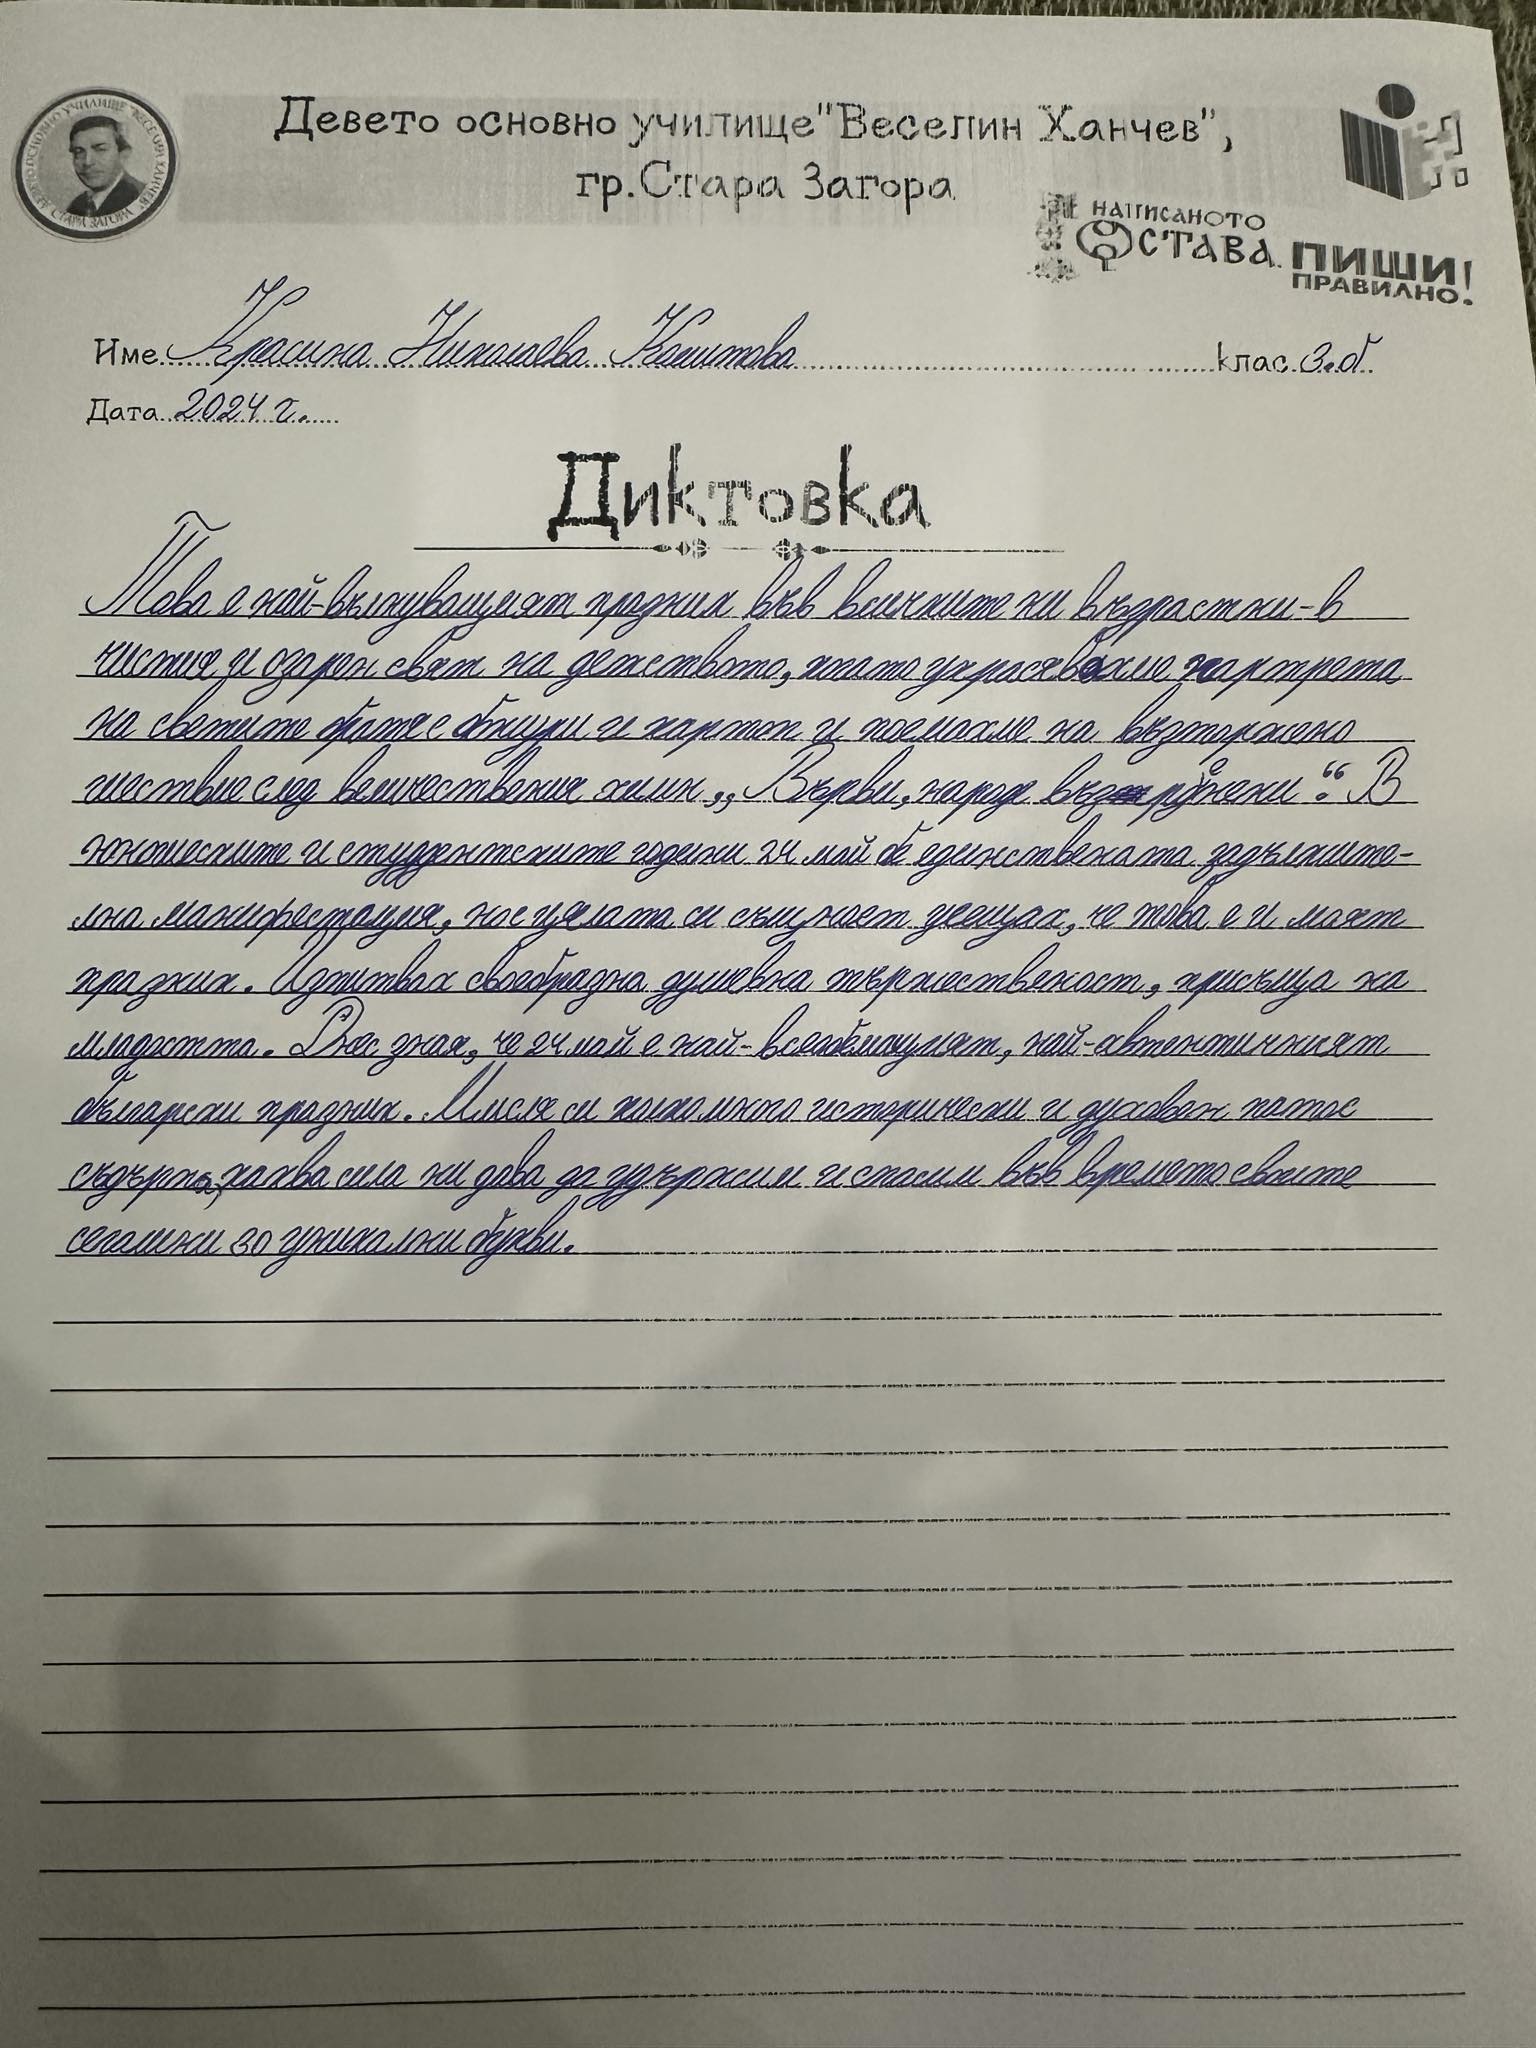 Девето основно училище "Веселин Ханчев",
гр. Стара Загора
НАПИСАНОТО
ОСТАВА. ПИШИ
ПРАВИЛНО!
Име Красина Николаева клас 3. б
Дата 2024 г.
Диктовка
Това е най-вълнуващият празник във всичките ни възрастки - в
чистия и озарен свят на детството, когато украсявахме портрета
на светите братя с божури и картон и поемахме на възторжено
шествие след величествения химн „Върви, народе възрожени“. В
юношеските и студентските години 24 май бе единствената задължите-
лна манифестация, нос цялата си същност усещах, че това е и моят
празник. Изпитвах своеобразна душевна тържественост, присъща на
младостта. Днес зная, че 24 май е най-всеобемащият, най-автентичният
български празник. Мисля си колко много исторически и духовен патос
съдържа, каква сила ни дава да удържим и спасим във времето своите
сегашни 30 уникални букви.